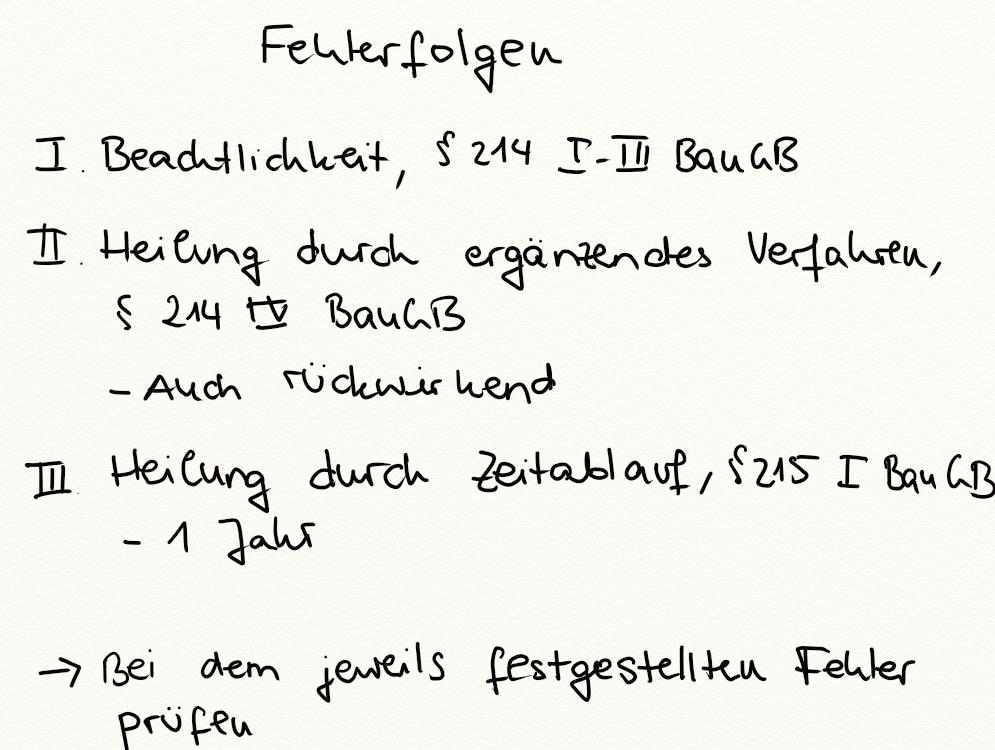 Fehlerfolgen
I. Beachtlichkeit, § 214 I-III BauGB
II. Heilung durch ergänzendes Verfahren,
§ 214 IV BauGB
- Auch rückwirkend
III. Heilung durch Zeitablauf, § 215 I BauGB
- 1 Jahr
→ Bei dem jeweils festgestellten Fehler
prüfen